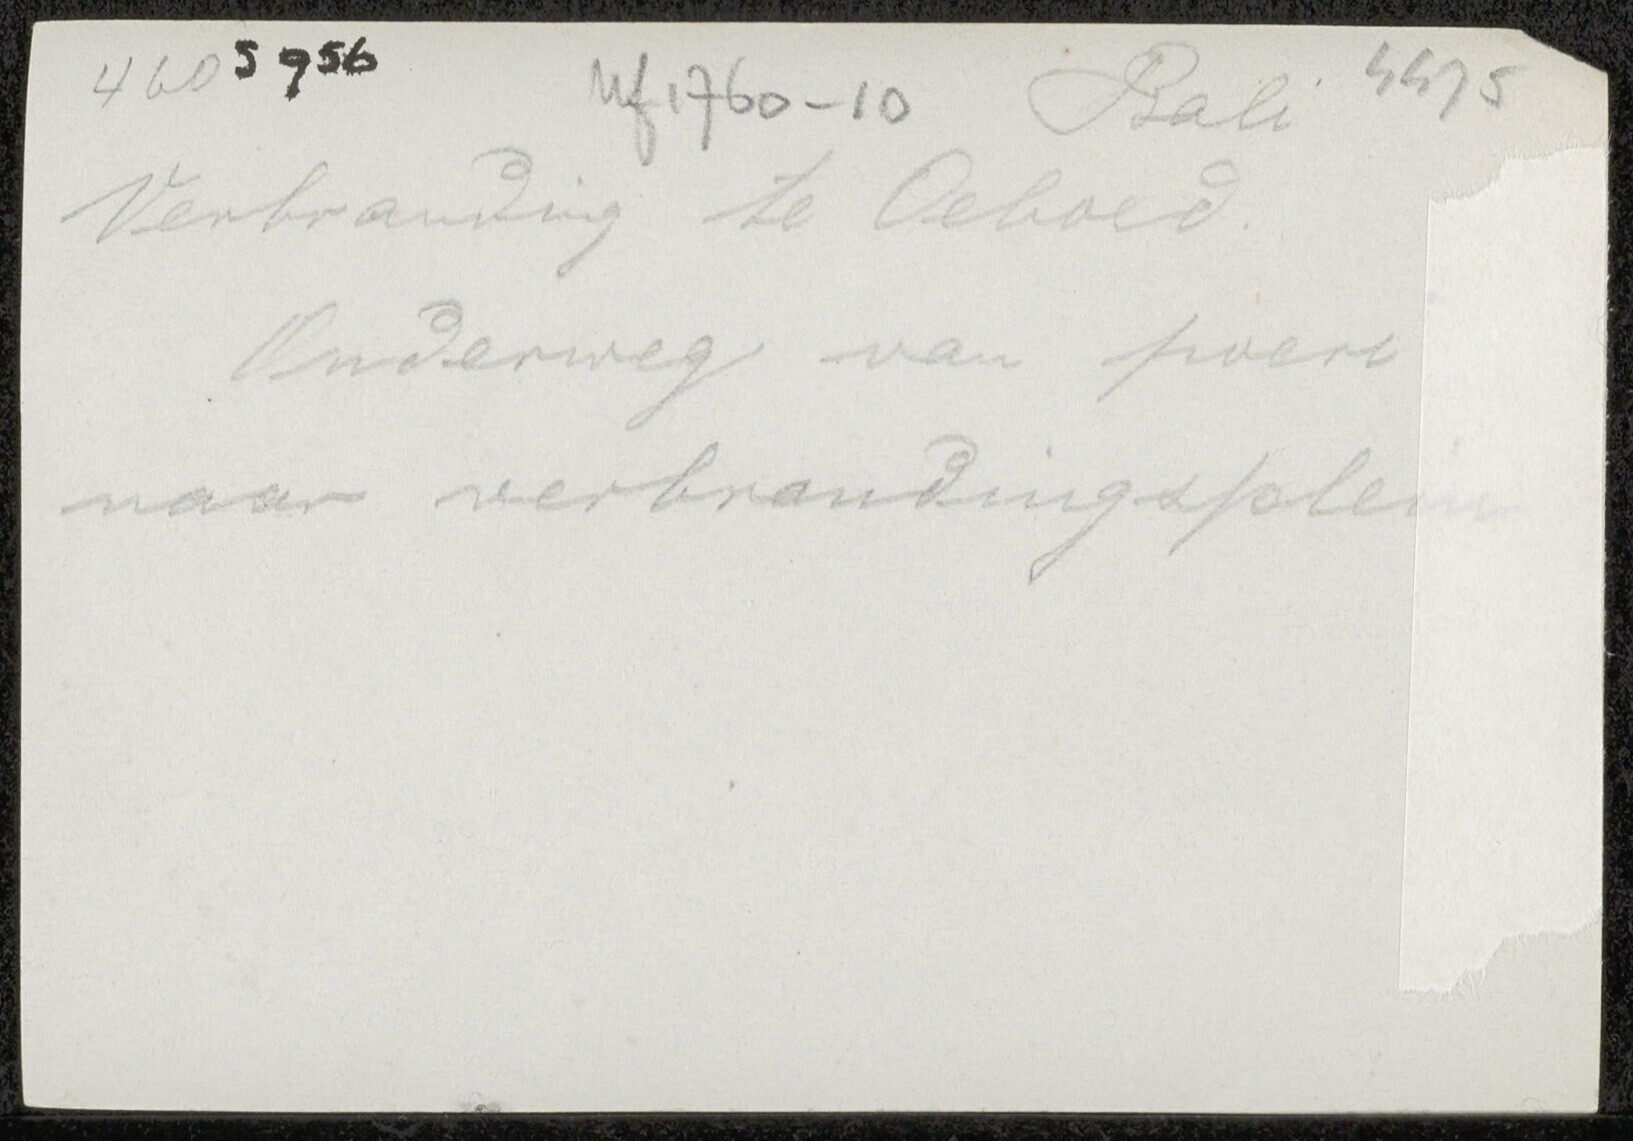 460 5956 Nf1760-10 Bali 4475
Verbranding te Oeboed.
Onderweg van poeri
naar verbrandingsplein